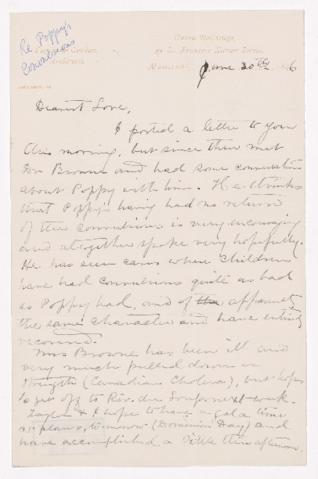 Re. Poppy's
Convulsions
June 30th, 6
Dearest Love,
I posted a letter to you
this morning, but since then met
Browne and had some conversation
about Poppy with him. He thinks
that Poppy's having had no return
of the convulsions is very encouraging
and altogether spoke very hopefully.
He has seen cases where children
have had convulsions quite as bad
as Poppy had, and of apparently
the same character and have entirely
recovered.
Mrs Browne has been ill and
very much pulled down in
strength (Canadian Cholera), but hopes
to get off to Riv. du Loup next week.
Taylor & I hope to have a good time
at plans, to-morrow (Dominion Day) and
have accomplished a little this afternoon.